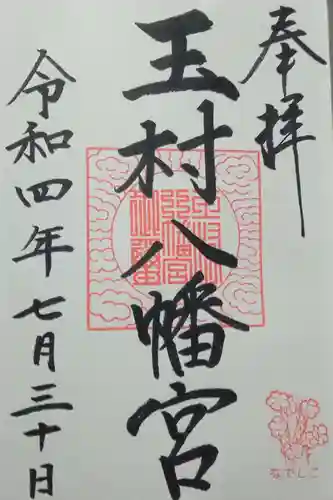 奉拝
玉村八幡宮
令和四年七月三十日
なでしこ